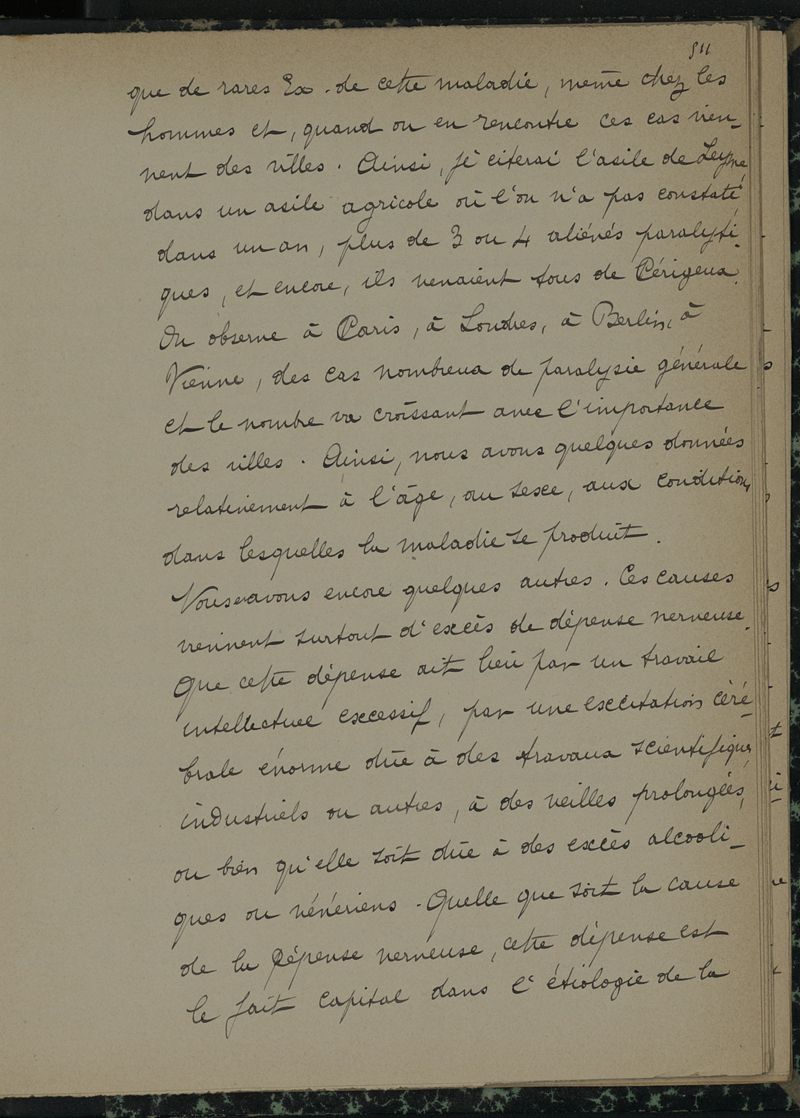 511
que de rares Ex. de cette maladie, même chez les
hommes et, quand on en rencontre ces cas vien-
nent des villes. Ainsi, je citerai l'asile de Leyme
dans un asile agricole où l'on n'a pas constaté
dans un an, plus de 3 ou 4 aliénés paralyti-
ques, et encore, ils venaient tous de Périgeux.
On observe à Paris, à Londres, à Berlin, à
Vienne, des cas nombreux de paralysie générale
et le nombre va croissant avec l'importance
des villes. Ainsi, nous avons quelques données
relativement à l'âge, au sexe, aux conditions
dans lesquelles la maladie se produit.
Nous avons encore quelques autres. Ces causes
viennent surtout d'excès de dépense nerveuse.
Que cette dépense ait lieu par un travail
intellectuel excessif, par une excitation céré-
brale énorme dûe à des travaux scientifiques,
industriels ou autres, à des veilles prolongées,
ou bien qu'elle soit dûe à des excès alcooli-
ques ou vénériens. Quelle que soit la cause
de la dépense nerveuse, cette dépense est
le fait capital dans l'étiologie de la